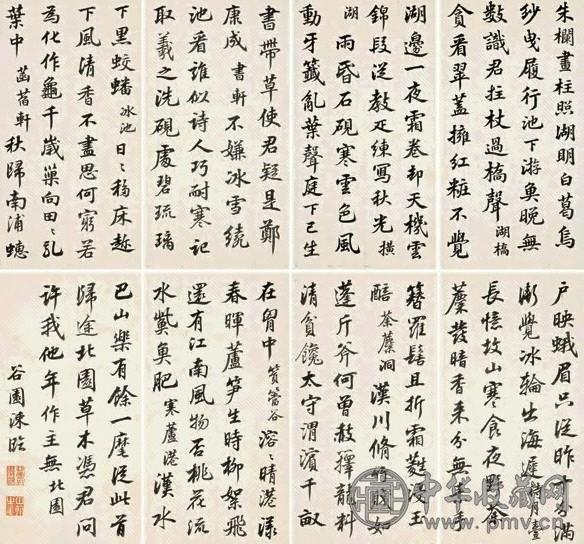 朱欄畫柱照湖明白葛烏
紗曳履行池下游魚晚無
數識君拄杖過橋聲 湖橋
貪看翠蓋擁紅粧不覺
湖邊一夜霜卷却天機雲
錦段從教疋練寫秋光 橫
湖 雨昏石硯寒雲色風
動牙籤亂葉聲庭下已生
書帶草使君疑是鄭
康成 書軒 不嫌冰雪繞
池看誰似詩人巧耐寒記
取羲之洗硯處碧琉璃
下黑蛟蟠 冰池 日日移床趁
下風清香不盡思何窮若
為化作龜千歲巢向田田亂
葉中 菡萏軒 秋歸南浦蟪
戶映蛾眉只從昨夜十分滿
漸覺冰輪出海遲 待月臺
長憶故山寒食夜野荼
蘪發暗香来分無素手
簪羅髻且折霜蕤浸玉
醅 荼蘪洞 漢川脩竹賤如
蓬斤斧何曾赦籜龍料
清貧饞太守渭濱千畝
在胷中 篔簹谷 溶溶晴港漾
春暉蘆筍生時柳絮飛
還有江南風物否桃花流
水鮆魚肥 寒蘆港 漢水
巴山樂有餘一麾從此首
歸途北園草木憑君問
許我他年作主無 北園
谷園陳
中华收藏网
www.pmv.cn